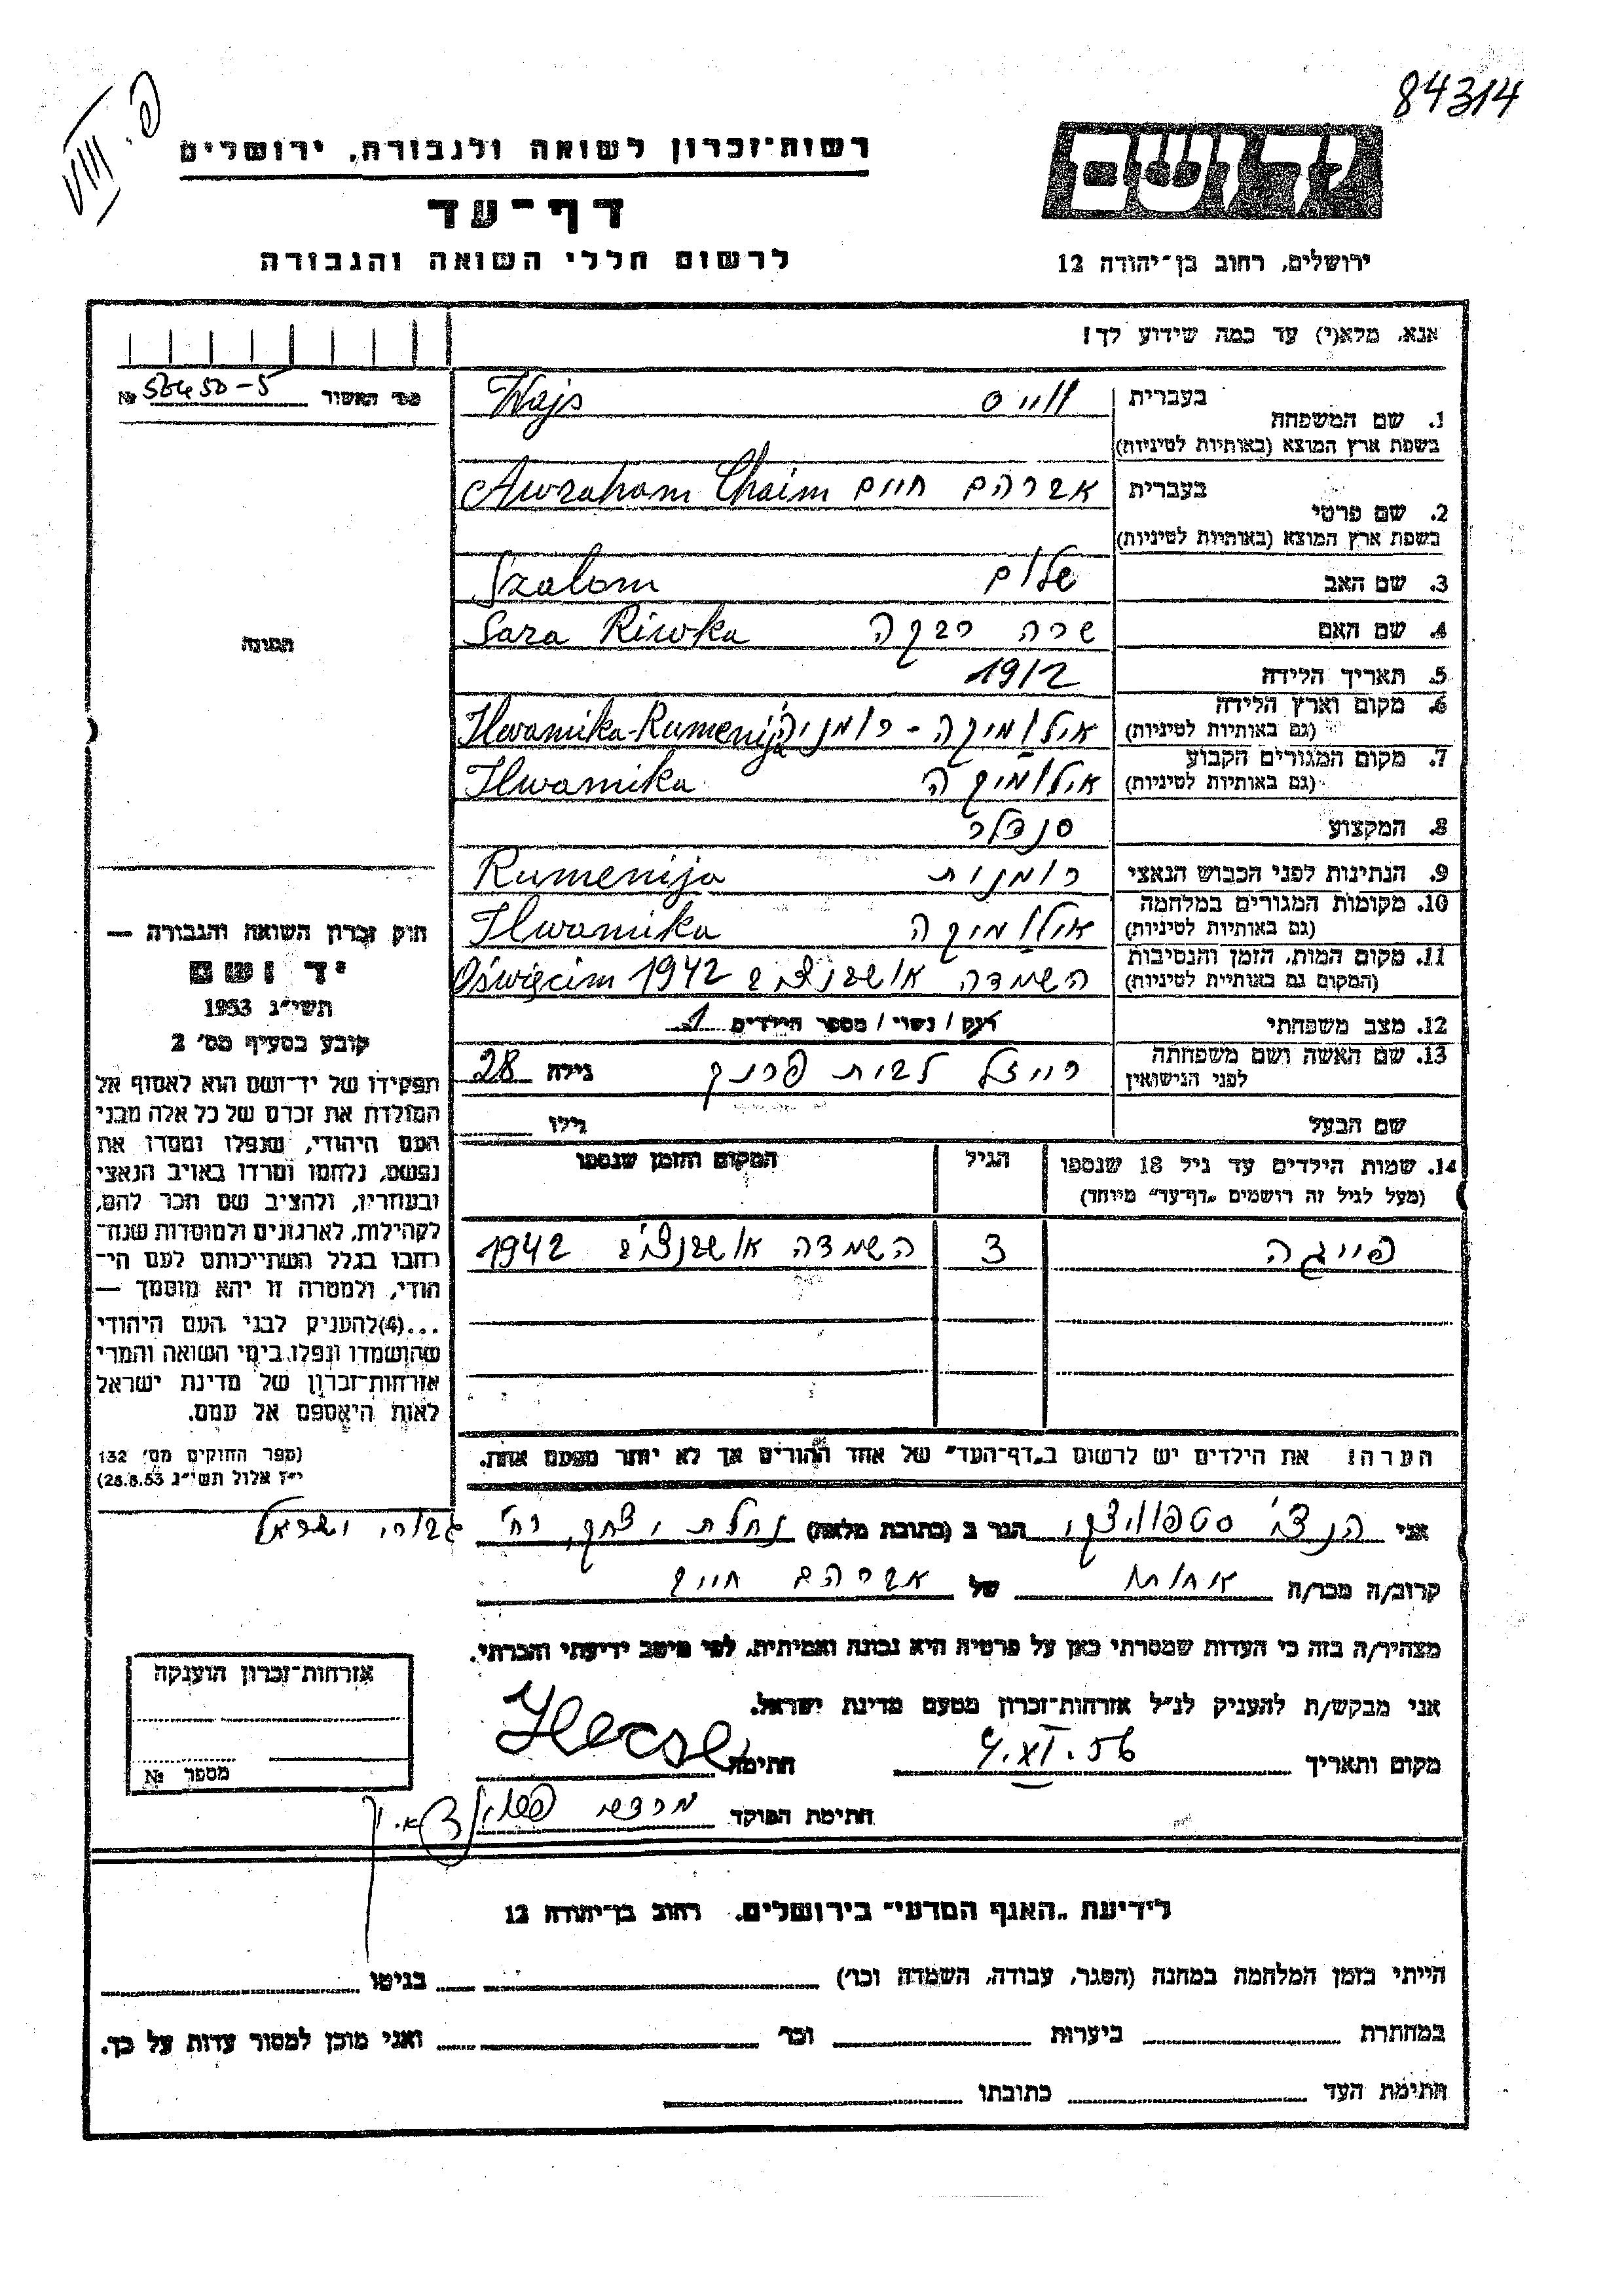 84314
רשות־זכרון לשואה ולגבורה, ירושלים
דף־עד
לרשום חללי השואה והגבורה
ירושלים, רחוב בן־יהודה 12
אנא, מלא(י) עד כמה שידוע לך!
מס׳ האשור №
1. שם המשפחה בעברית ווייס Wajs
בשפת ארץ המוצא (באותיות לטיניות)
2. שם פרטי בעברית אברהם חיים Awraham Chaim
בשפת ארץ המוצא (באותיות לטיניות)
3. שם האב שלום Szalom
4. שם האם שרה רבקה Sara Riwka
5. תאריך הלידה 1912
6. מקום וארץ הלידה (גם באותיות לטיניות) אילוומיקה - רומניה Ilwamika-Rumenija
7. מקום המגורים הקבוע (גם באותיות לטיניות) אילוומיקה Ilwamika
8. המקצוע סנדלר
9. הנתינות לפני הכבוש הנאצי רומנית Rumenija
10. מקומות המגורים במלחמה (גם באותיות לטיניות) אילוומיקה Ilwamika
11. מקום המות, הזמן והנסיבות (המקום גם באותיות לטיניות) השמדה אושבנצים Oświęcim 1942
12. מצב משפחתי רווק / נשוי / מספר הילדים 1
13. שם האשה ושם משפחתה לפני הנישואין רייזל לבית פרנק גילה 28
שם הבעל גילו
14. שמות הילדים עד גיל 18 שנספו הגיל המקום והזמן שנספו
(מעל לגיל זה רושמים „דף־עד״ מיוחד)
פייגה 3 השמדה אושבנצים 1942
הערה: את הילדים יש לרשום ב„דף־העד״ של אחד ההורים אך לא יותר מפעם אחת.
התמונה
חוק זכרון השואה והגבורה —
יד ושם
תשי״ג 1953
קובע בסעיף מס׳ 2
תפקידו של יד־ושם הוא לאסוף אל
המולדת את זכרם של כל אלה מבני
העם היהודי, שנפלו ומסרו את
נפשם, נלחמו ומרדו באויב הנאצי
ובעוזריו, ולהציב שם וזכר להם,
לקהילות, לארגונים ולמוסדות שנח־
רבו בגלל השתייכותם לעם הי־
הודי, ולמטרה זו יהא מוסמך —
...(4) להעניק לבני העם היהודי
שהושמדו ונפלו בימי השואה והמרי
אזרחות־זכרון של מדינת ישראל
לאות היאספם אל עמם.
(ספר החוקים מס׳ 132
י״ז אלול תשי״ג 28.8.53)
אני הגר ב (כתובת מלאה) נחלת יצחק, רח׳ גבורי ישראל
קרוב/ה מכר/ה אחות של אברהם חיים
מצהיר/ה בזה כי העדות שמסרתי כאן על פרטיה היא נכונה ואמיתית, לפי מיטב ידיעתי והכרתי.
אני מבקש/ת להעניק לנ״ל אזרחות־זכרון מטעם מדינת ישראל.
מקום ותאריך 4.XI.56 חתימה
חתימת הפוקד
אזרחות־זכרון הוענקה
מספר №
לידיעת „האגף המדעי״ בירושלים, רחוב בן־יהודה 12
הייתי בזמן המלחמה במחנה (הסגר, עבודה, השמדה וכו׳) בגיטו
במחתרת ביערות וכו׳ ואני מוכן למסור עדות על כך.
חתימת העד כתובתו